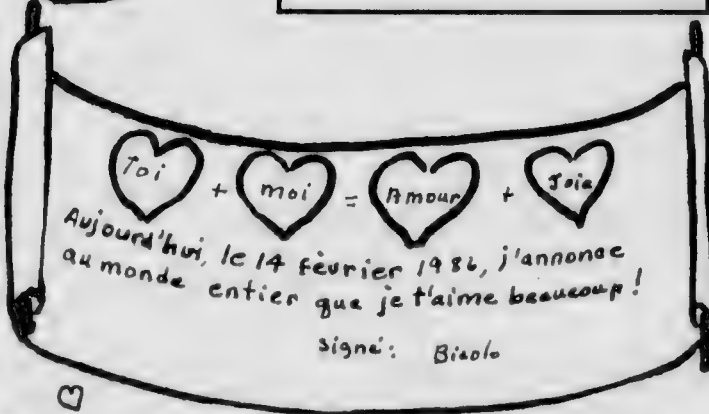 Toi + moi = Amour + Joie
Aujourd'hui, le 14 février 1986, j'annonce
au monde entier que je t'aime beaucoup !
signé: Bisolo